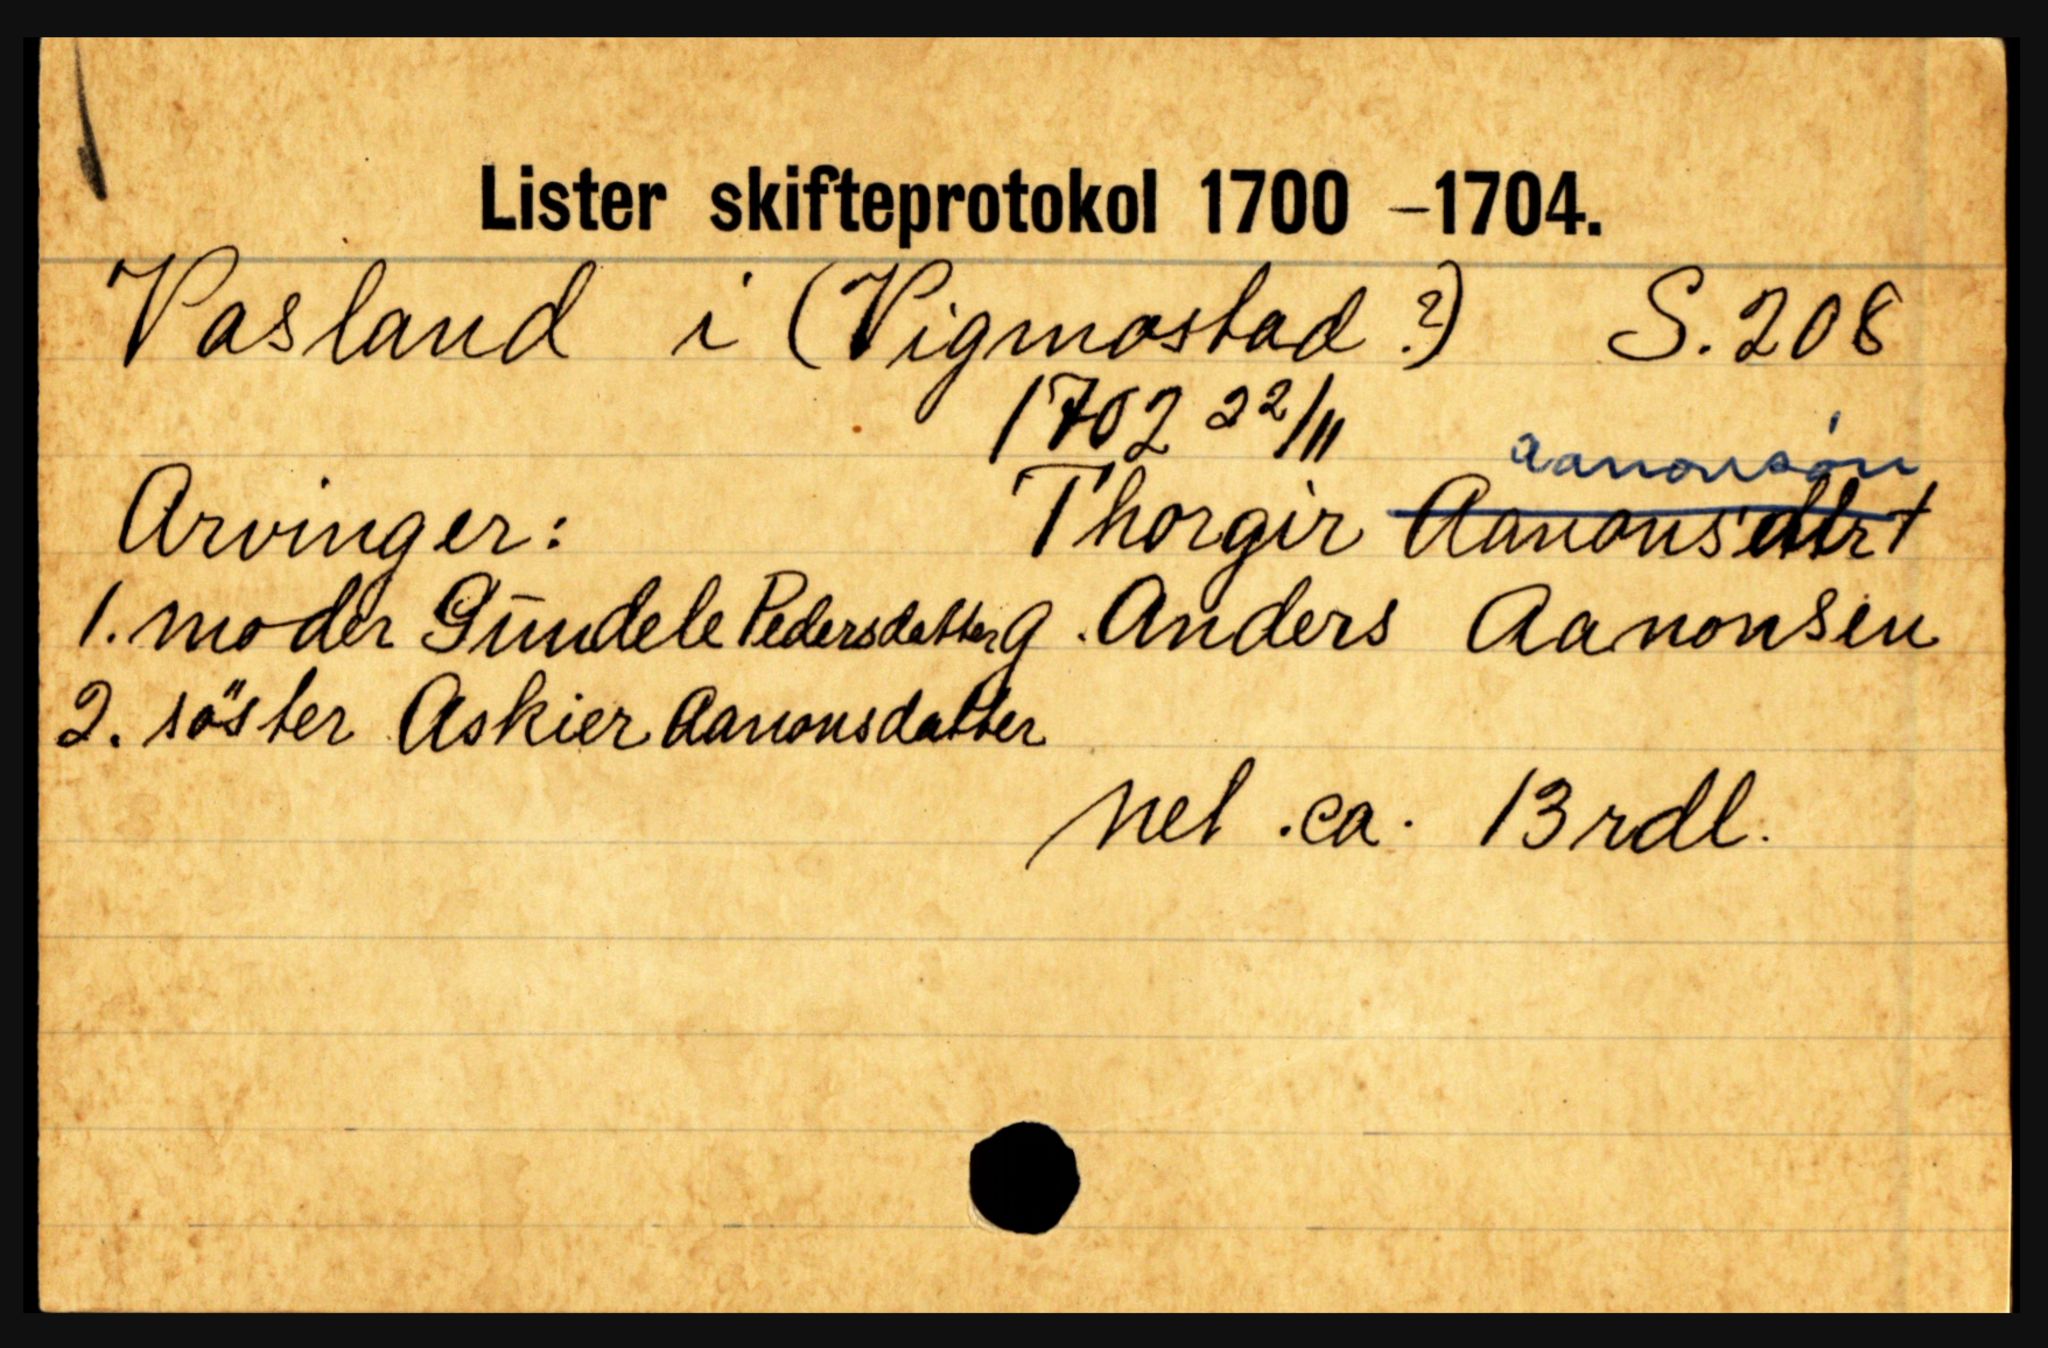 Lister skifteprotokol 1700 –1704.
Vasland i (Vigmostad ?) S. 208
1702 22/11
aanonsön
Arvinger: Thorgir Aanonsdtr †
1. moder Gundele Pedersdatter g. Anders Aanonsen
2. söster Askier Aanonsdatter
Net. ca. 13 rdl.